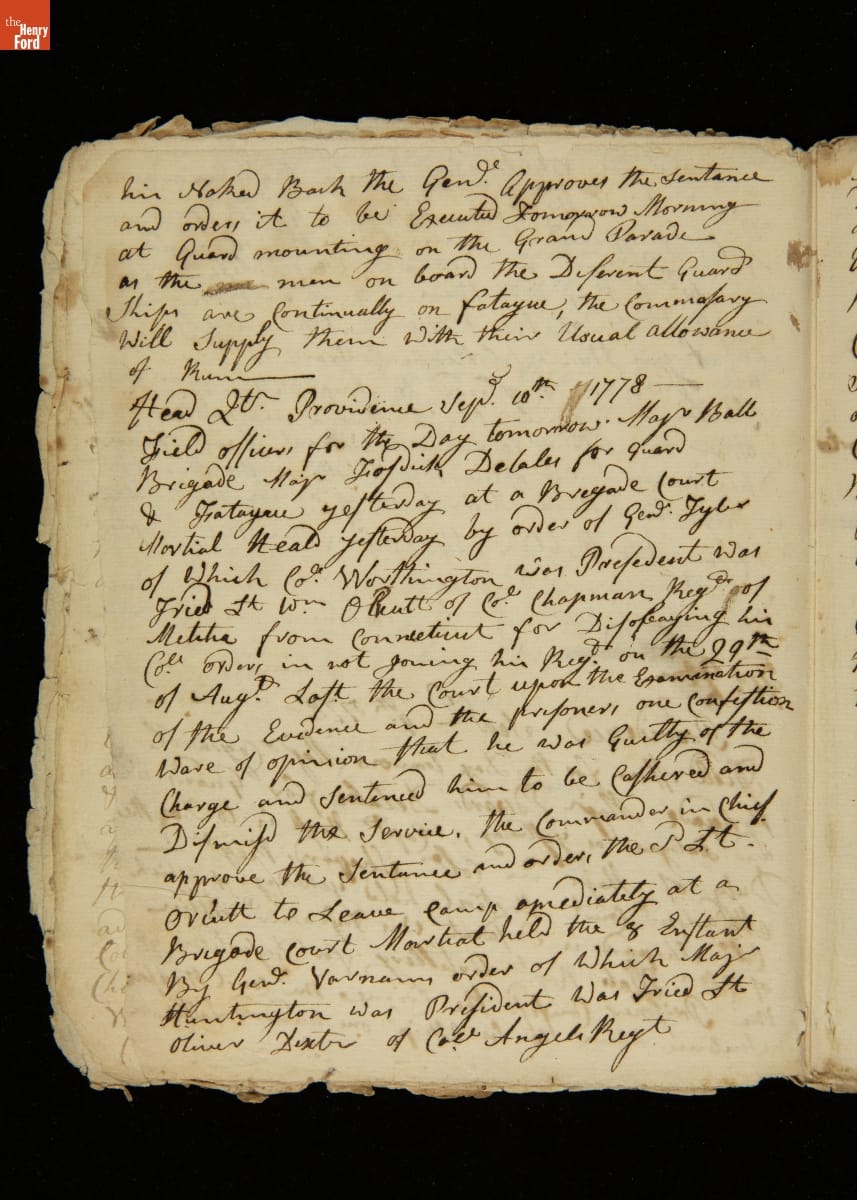 the
Henry
Ford
his Naked Back the Genl. Approves the Sentance
and orders it to be Executed Tomorrow Morning
at Guard mounting on the Grand Parade
as the men on board the Diferent Guard
Ships are Continually on fatague, the Commasary
Will Supply them With their Usual allowance
of Rum
Head Qtr. Providence Sepd. 10th 1778
Field officers for the Day tomorrow. Majr Ball
Brigade Majr Fosdick Detales for guard
& Fatague yesterday at a Bregade Court
Martial Heald yesterday by order of Genl. Tyler
of Which Col. Worthington was Presedent was
Tried Lt Wm Orcutt of Col. Chapman Regt of
Militia from Connecticut for Disobeaying his
Cols orders in not joining his Regt. on the 29th
of Augt. Last. the Court upon the Examination
of the Evidence and the prisoners one Confestion
Ware of opinion that he was Guilty of the
Charge and Sentenced him to be Cashered and
Dismisd the Service. the Commander in Chief
approve the Sentance and orders the Sd Lt.
Orcutt to Leave Camp amediately at a
Brigade Court Martial held the 8 Enstant
By Genl. Varnams order of Which Majr
Huntington was President Was Tried Lt
Oliver Dexter of Col. Angels Regt